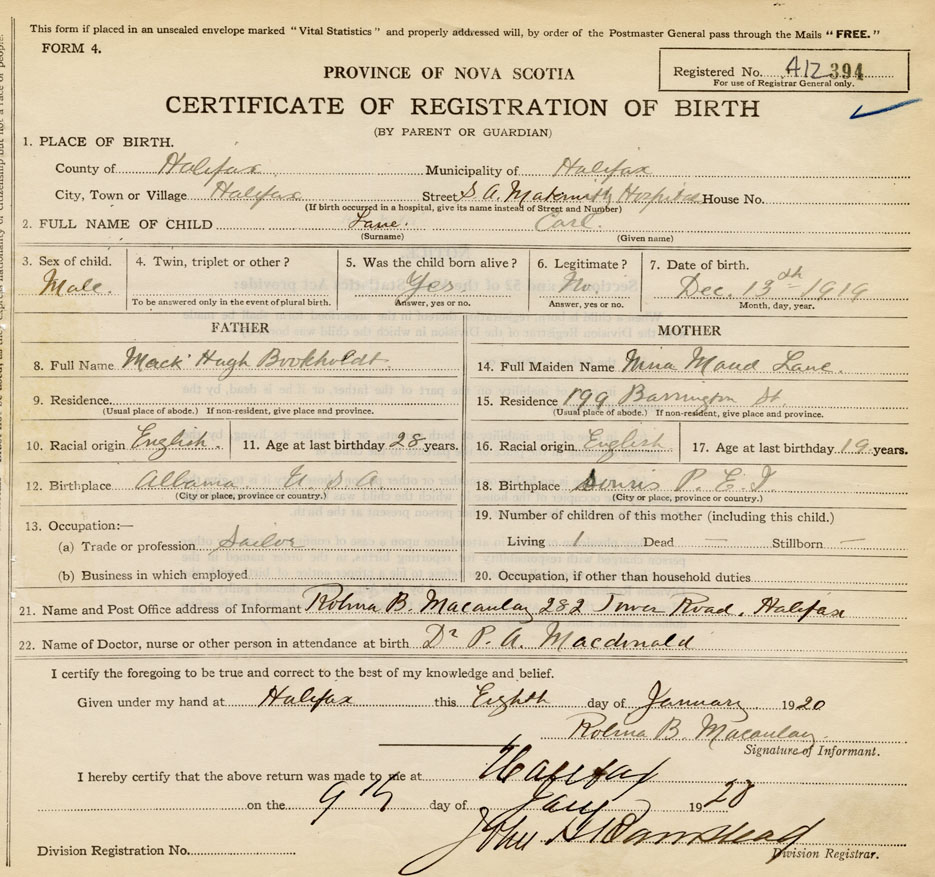 This form if placed in an unsealed envelope marked "Vital Statistics" and properly addressed will, by order of the Postmaster General pass through the Mails "FREE."
FORM 4.
Registered No. A12 394
For use of Registrar General only.
PROVINCE OF NOVA SCOTIA
CERTIFICATE OF REGISTRATION OF BIRTH
(BY PARENT OR GUARDIAN)
1. PLACE OF BIRTH.
County of Halifax Municipality of Halifax
City, Town or Village Halifax Street S. A. Maternity Hospital House No.
(If birth occurred in a hospital, give its name instead of Street and Number)
2. FULL NAME OF CHILD Lane. Carl.
(Surname) (Given name)
3. Sex of child. 4. Twin, triplet or other? 5. Was the child born alive? 6. Legitimate? 7. Date of birth.
Male. Yes. No. Dec. 13th 1919
To be answered only in the event of plural birth. Answer, yes or no. Answer, yes or no. Month, day, year.
FATHER
8. Full Name Mack Hugh Bookholdt.
9. Residence
(Usual place of abode.) If non-resident, give place and province.
10. Racial origin English. 11. Age at last birthday 28 years.
12. Birthplace Albama U S A.
(City or place, province or country.)
13. Occupation:—
(a) Trade or profession Sailor
(b) Business in which employed
MOTHER
14. Full Maiden Name Mina Maud Lane.
15. Residence 199 Barrington St.
(Usual place of abode.) If non-resident, give place and province.
16. Racial origin English 17. Age at last birthday 19 years.
18. Birthplace Souris P. E. I.
(City or place, province or country.)
19. Number of children of this mother (including this child.)
Living 1 Dead — Stillborn —
20. Occupation, if other than household duties
21. Name and Post Office address of Informant Rolina B. Macaulay 282 Tower Road, Halifax
22. Name of Doctor, nurse or other person in attendance at birth Dr P. A. Macdonald
I certify the foregoing to be true and correct to the best of my knowledge and belief.
Given under my hand at Halifax this Eighth day of January 1920
Rolina B. Macaulay.
Signature of Informant.
I hereby certify that the above return was made to me at Halifax
on the 9th day of Jany 1920
John
Division Registration No. Division Registrar.